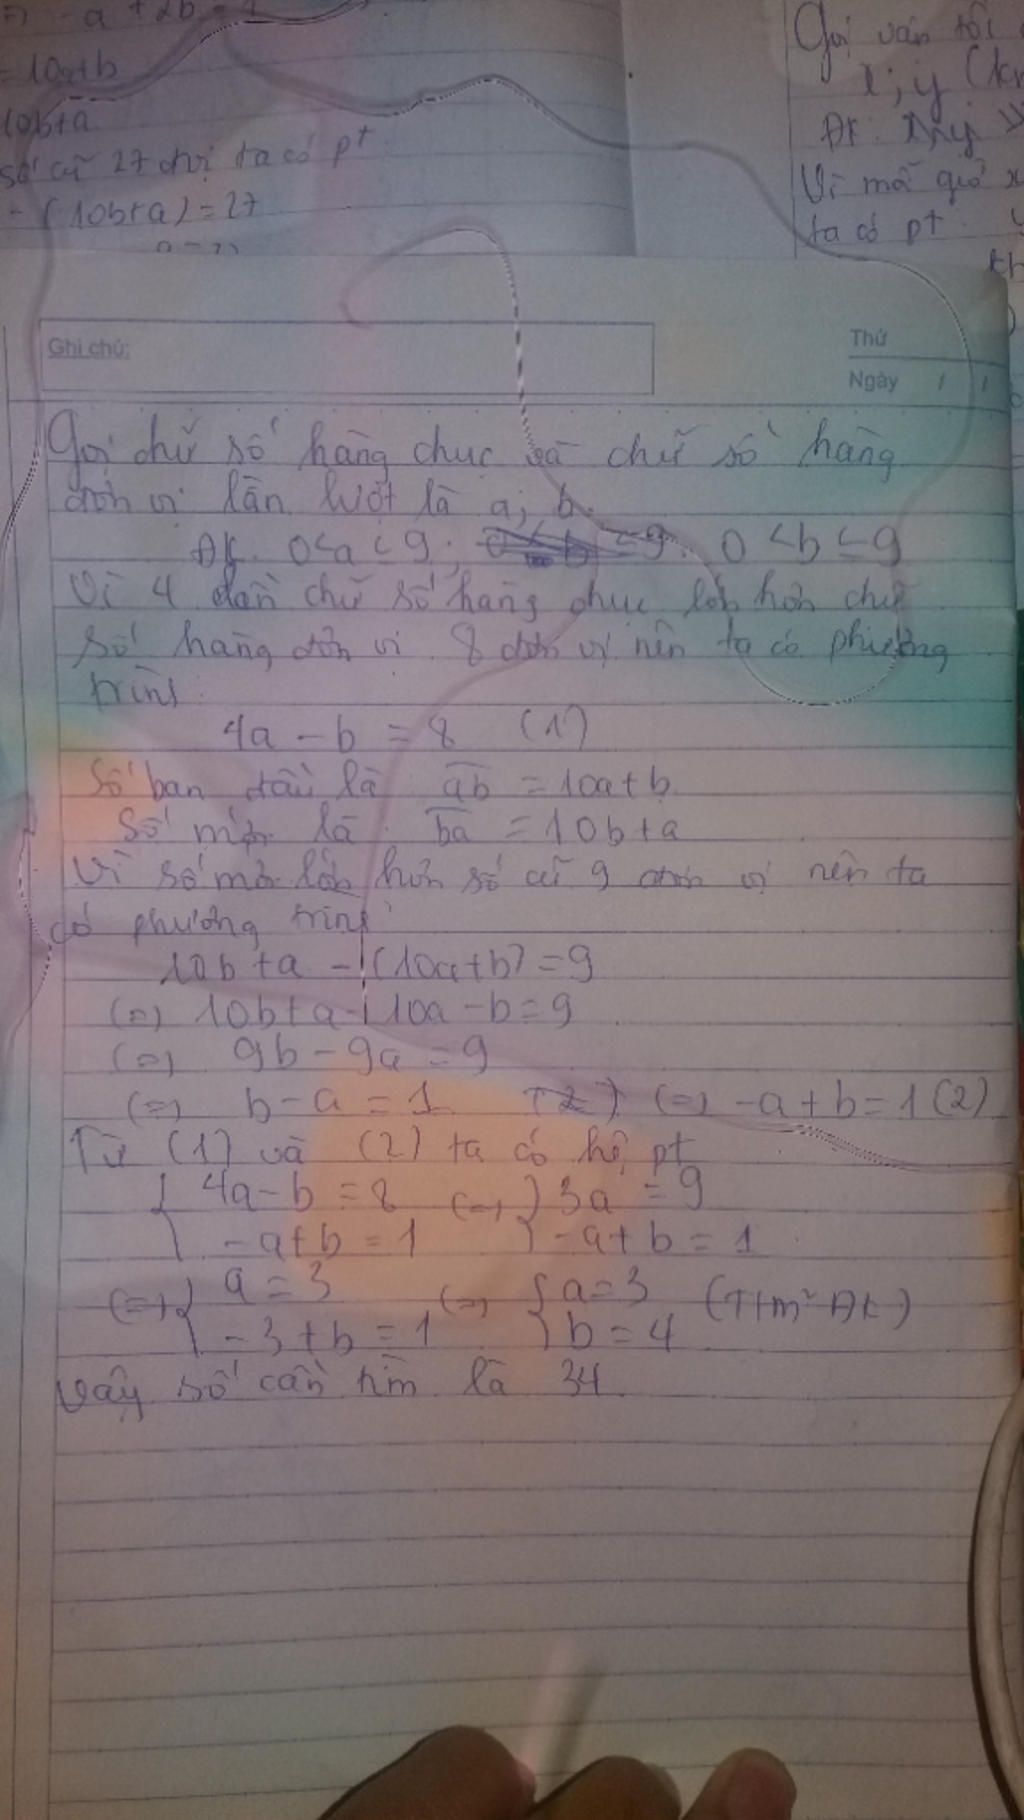 -a + 2b = 1
= 10a+b
10b+a
số cũ 27 đvị ta có pt
- (10b+a) = 27
Gọi vận tốc
x; y (km
ĐK: x, y
Vì mỗi giờ x
ta có pt
Ghi chú:
Thứ
Ngày / /
Gọi chữ số hàng chục và chữ số hàng
đơn vị lần lượt là a; b.
ĐK: 0<a≤9; 0<b≤9
Vì 4 lần chữ số hàng chục lớn hơn chữ
số hàng đơn vị 8 đơn vị nên ta có phương
trình:
4a - b = 8 (1)
Số ban đầu là: ab = 10a+b
Số mới là: ba = 10b+a
Vì số mới lớn hơn số cũ 9 đơn vị nên ta
có phương trình:
10b+a - (10a+b) = 9
(=) 10b+a - 10a - b = 9
(=) 9b - 9a = 9
(=) b - a = 1 (=) -a + b = 1 (2)
Từ (1) và (2) ta có hệ pt
{ 4a - b = 8 (=) { 3a = 9
-a+b = 1 -a+b = 1
(=) { a = 3 (=) { a = 3 (T/m ĐK)
-3+b = 1 b = 4
Vậy số cần tìm là 34.